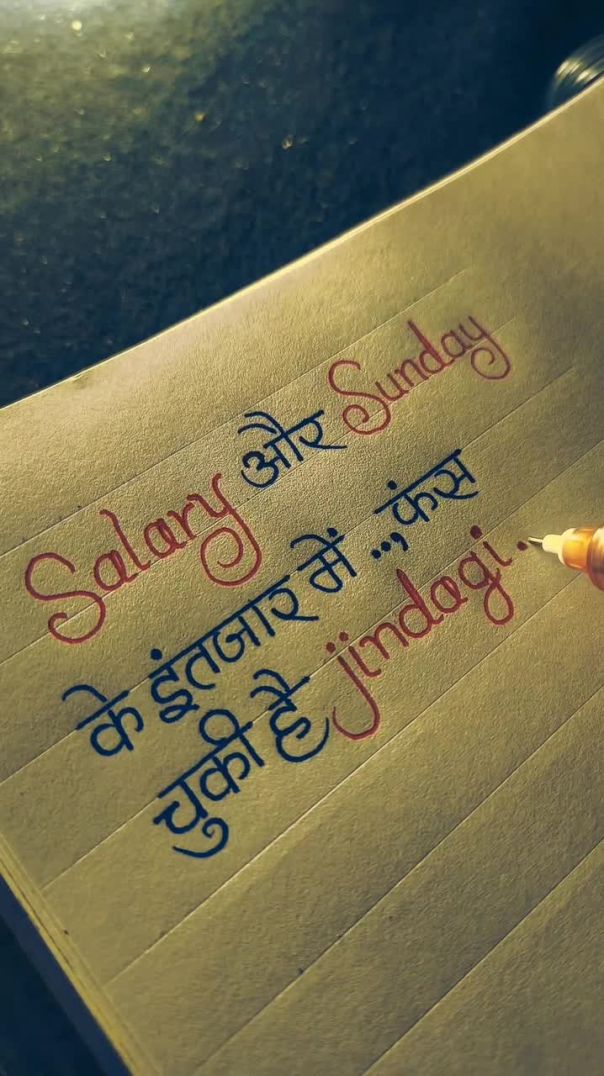 Salary और Sunday
के इंतजार में ..., फंस
चुकी है jindagi..